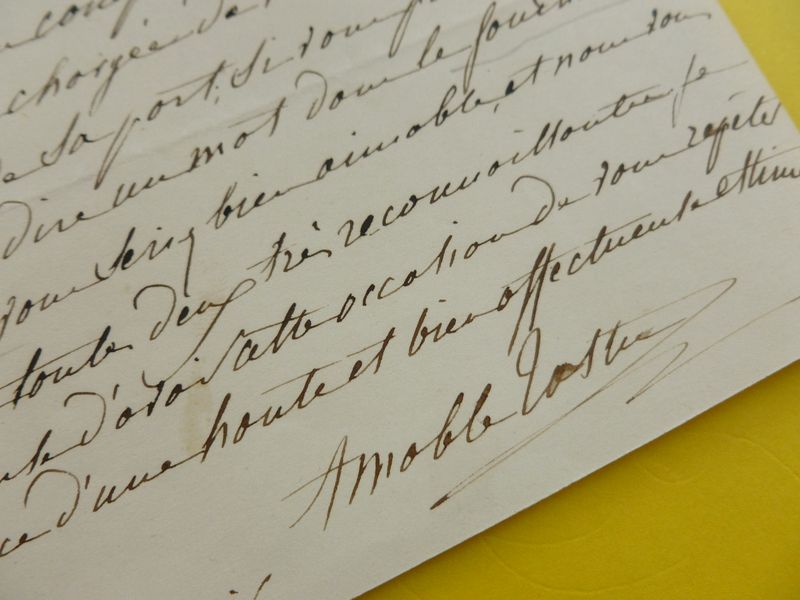 chargée de
sa part, si vous
dire un mot dont le
vous seriez bien aimable, et nous vous
toutes deux très reconnaissantes je
d'avoir cette occasion de vous répéter
d'une haute et bien affectueuse estime
Amable Tastu